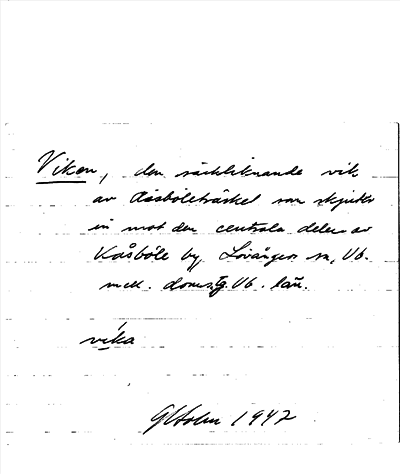 Viken, den säckliknande vik
av Gåsböleträsket som skjuter
in mot den centrala delen av
Kåsböle by, Lövångers sn, Vb.
mell. doms. Vb. län.
vika
GHolm 1947